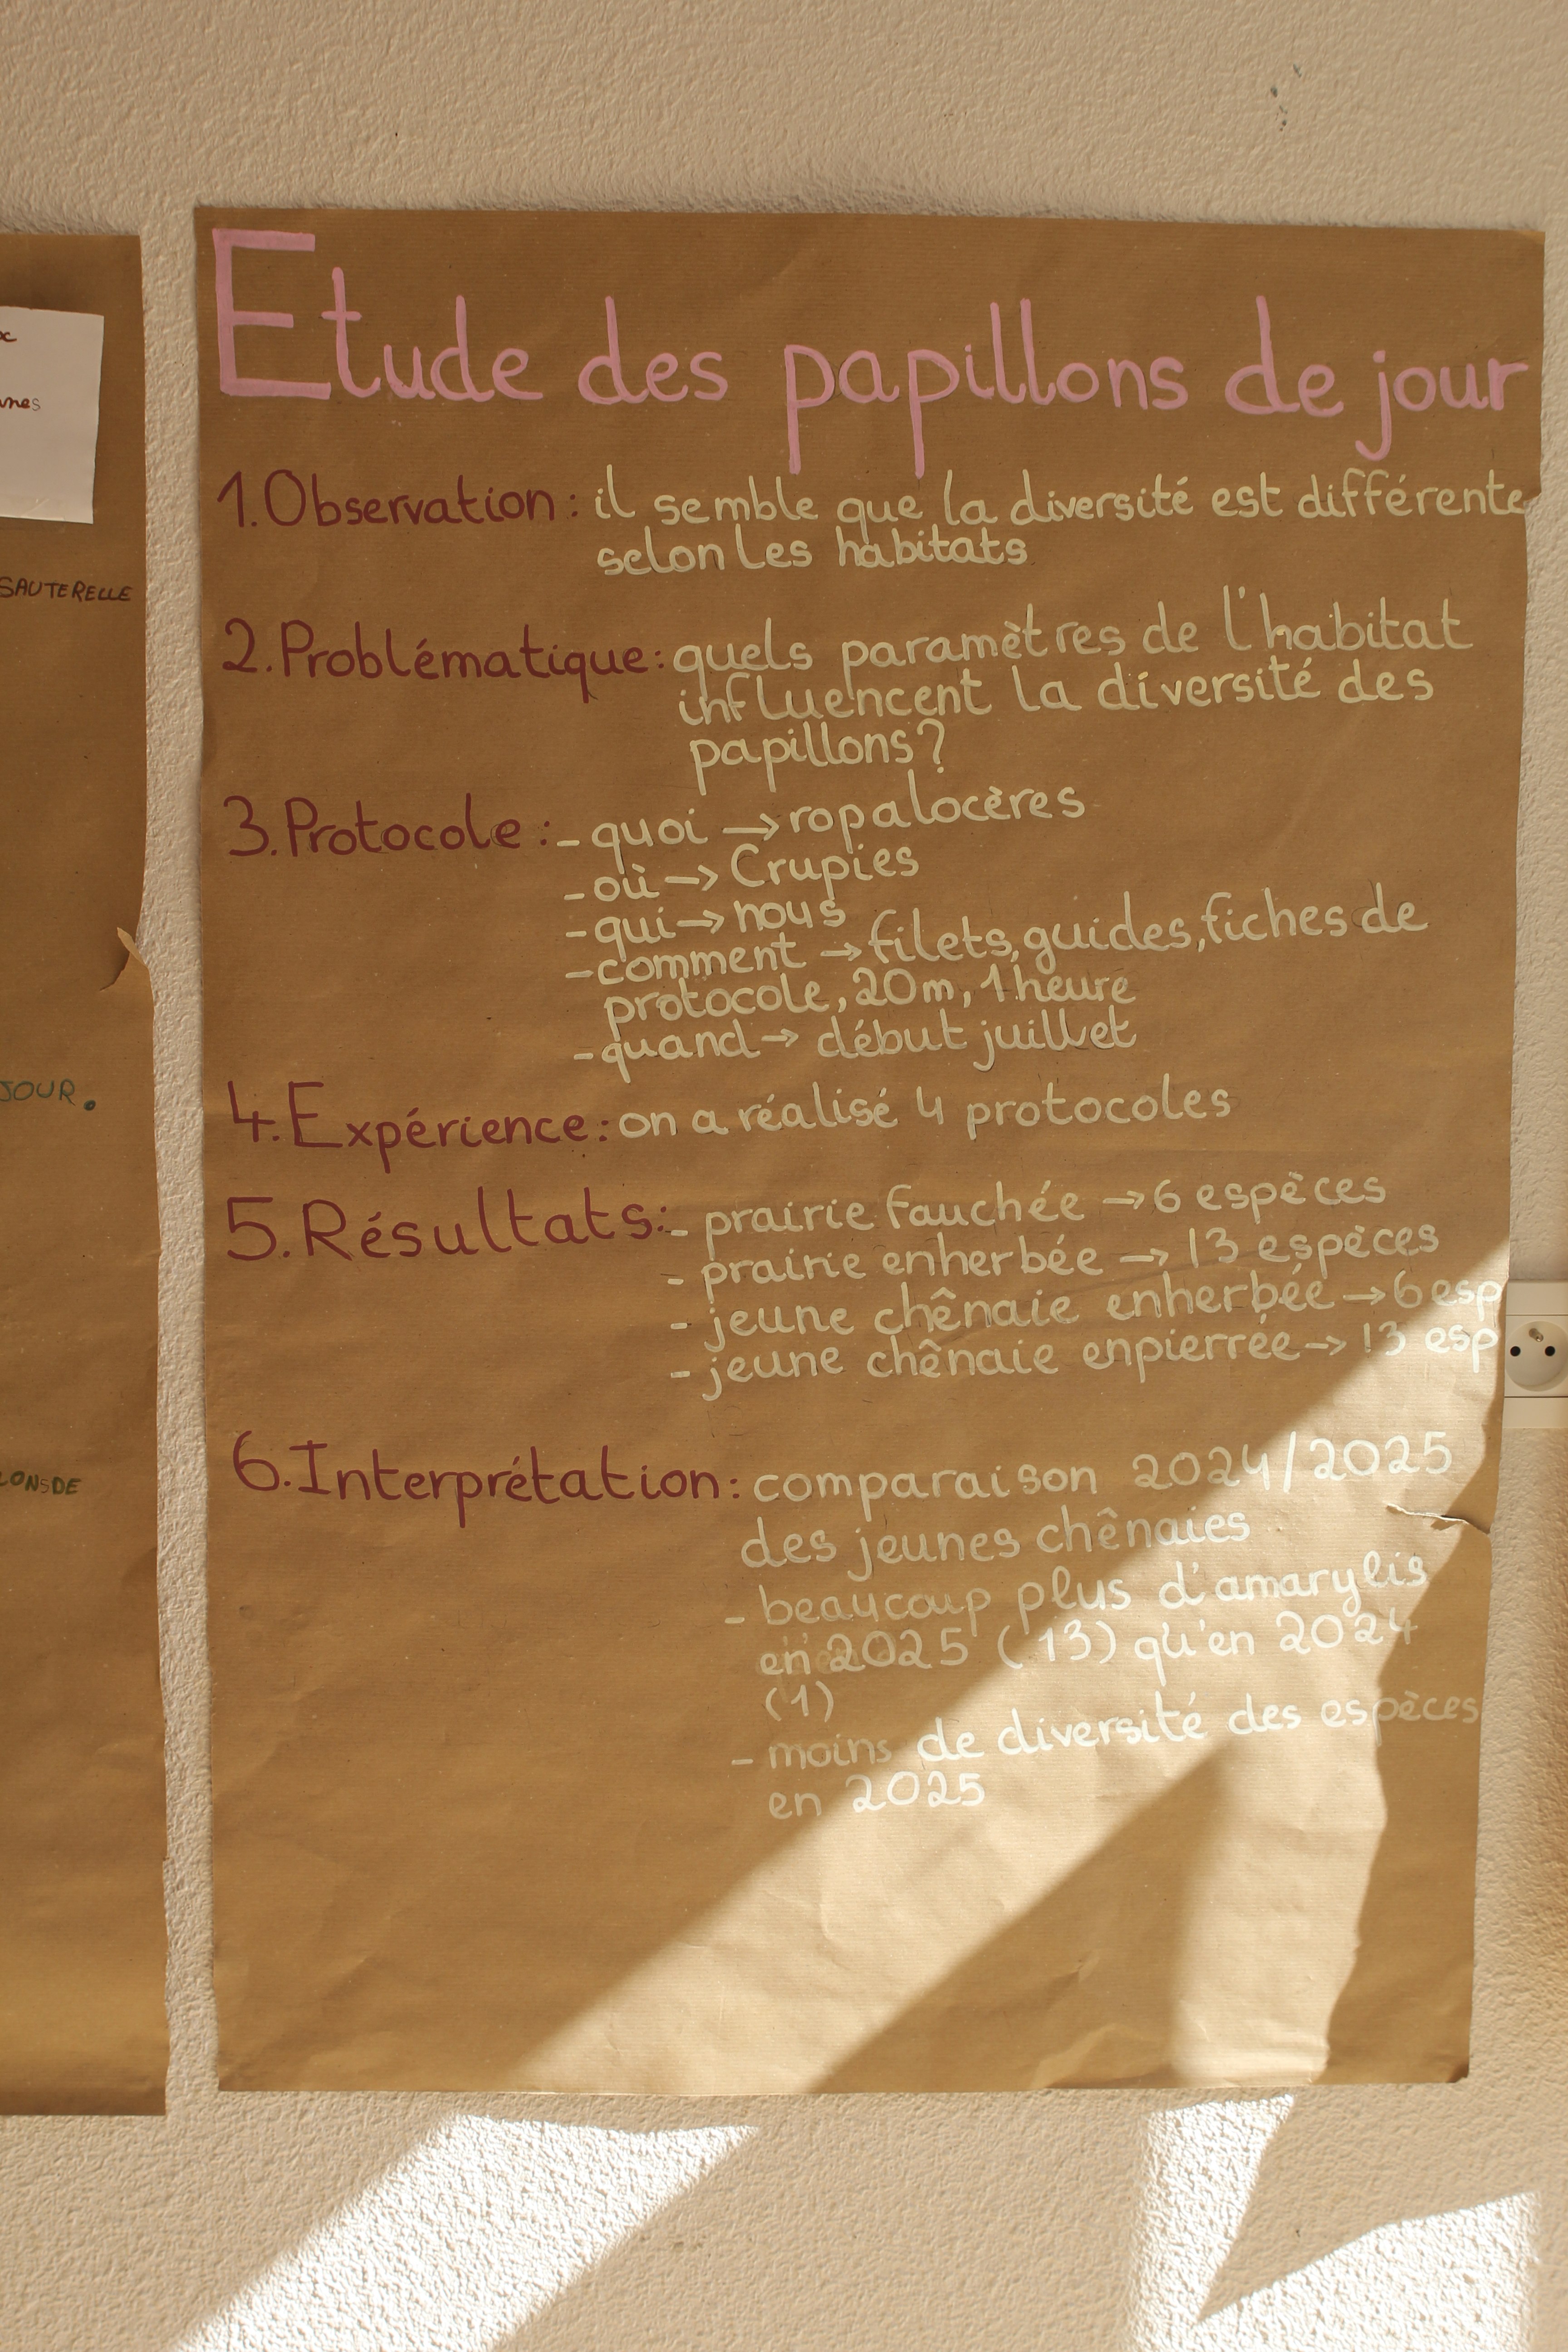 SAUTERELLE
JOUR.
Etude des papillons de jour
1.Observation: il semble que la diversité est différente
selon les habitats
2.Problématique: quels paramètres de l'habitat
influencent la diversité des
papillons?
3.Protocole: - quoi → ropalocères
- où → Crupies
- qui → nous
- comment → filets, guides, fiches de
protocole, 20m, 1 heure
- quand → début juillet
4.Expérience: on a réalisé 4 protocoles
5.Résultats: - prairie fauchée → 6 espèces
- prairie enherbée → 13 espèces
- jeune chênaie enherbée → 6 esp
- jeune chênaie enpierrée → 13 esp
6.Interprétation: comparaison 2024/2025
des jeunes chênaies
- beaucoup plus d'amarylis
en 2025 (13) qu'en 2024
(1)
- moins de diversité des espèces
en 2025